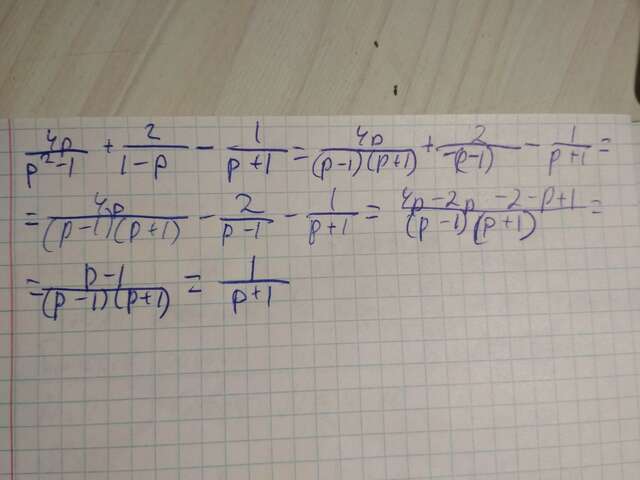 4p/(p²-1) + 2/(1-p) - 1/(p+1) = 4p/((p-1)(p+1)) + 2/(-(p-1)) - 1/(p+1) =
= 4p/((p-1)(p+1)) - 2/(p-1) - 1/(p+1) = (4p-2p-2-p+1)/((p-1)(p+1)) =
= (p-1)/((p-1)(p+1)) = 1/(p+1)